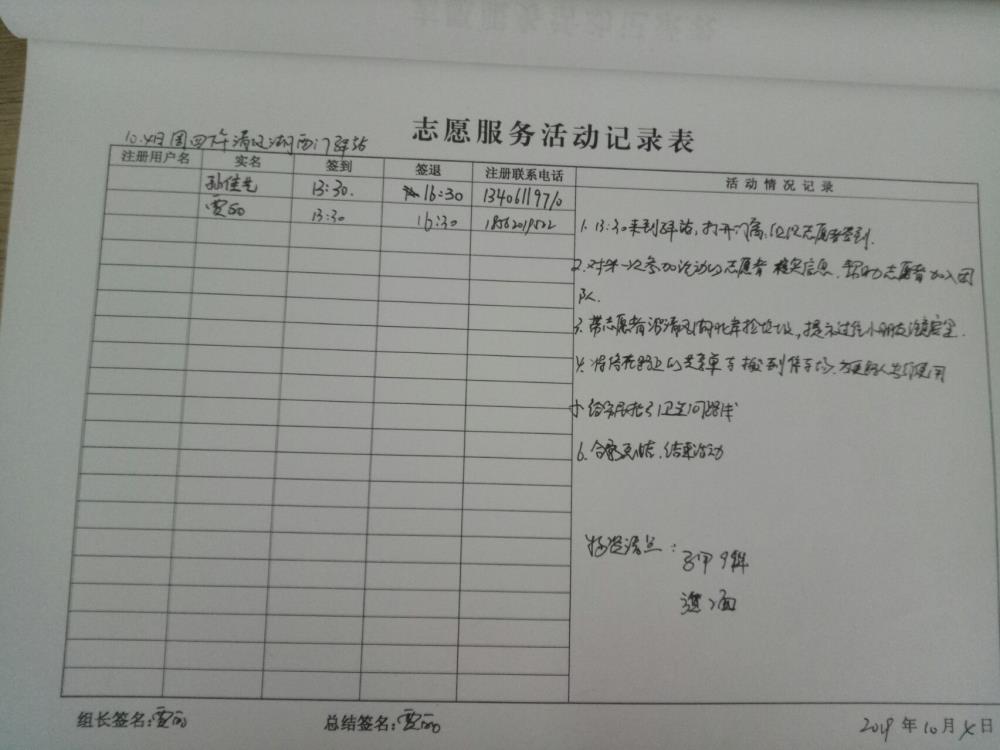 志愿服务活动记录表
10.4日周四下午清风湖西门驿站
注册用户名 实名 签到 签退 注册联系电话 活动情况记录
13:30. 16:30 13406119710
贾丽 13:30 16:30 18562019522
1. 13:30来到驿站,打开门窗,组织志愿者签到.
2. 对第一次参加活动的志愿者核实信息,帮助志愿者加入团
队.
3. 带志愿者沿清风湖北岸捡垃圾,提示过往小朋友注意安全.
4. 将停在路上的共享单车搬到停车场,方便路人出行使用
5. 给市民指引卫生间路线
6. 合影总结,结束活动
物资清点:马甲9件
旗2面
组长签名:贾丽 总结签名:贾丽 2019年10月4日